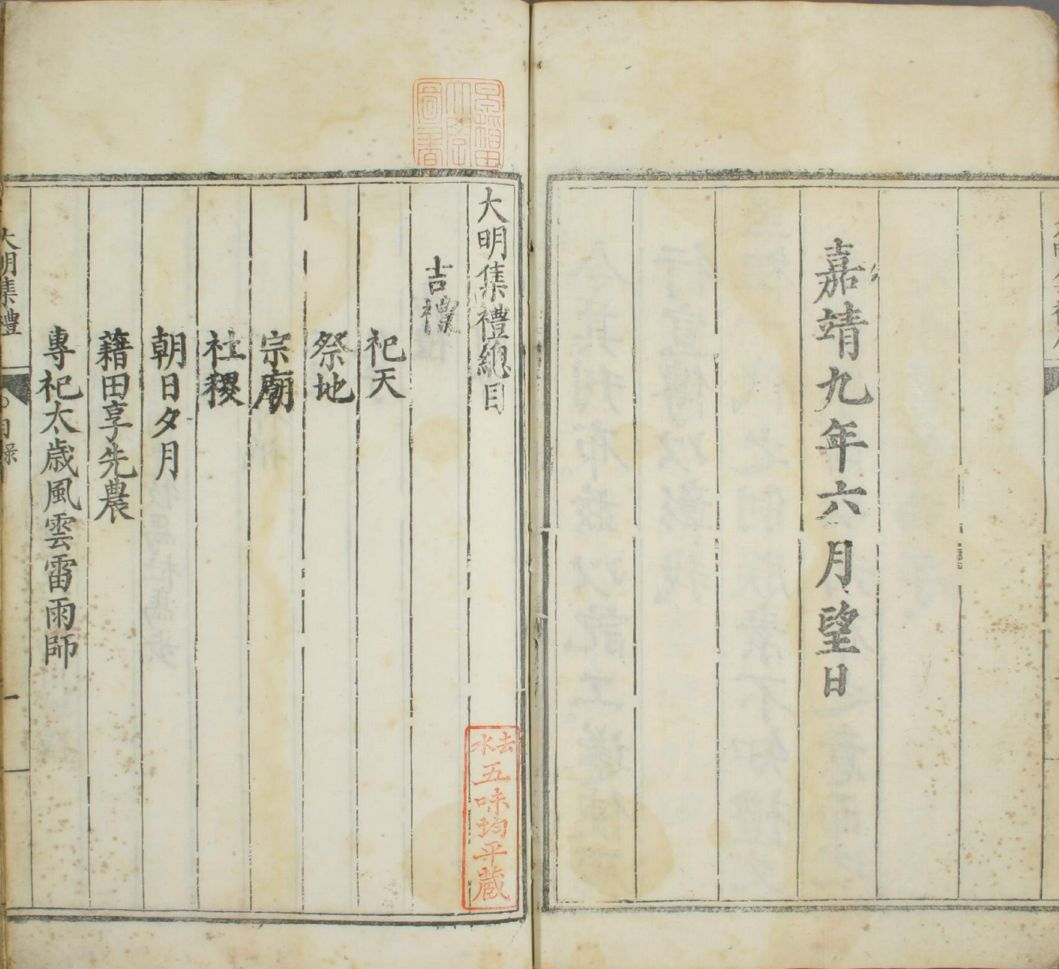 嘉靖九年六月望日
大明集禮總目
吉禮
祀天
祭地
宗廟
社稷
朝日夕月
藉田享先農
專祀太歲風雲雷雨師
大明集禮
目錄
一
去水
五味均平蔵